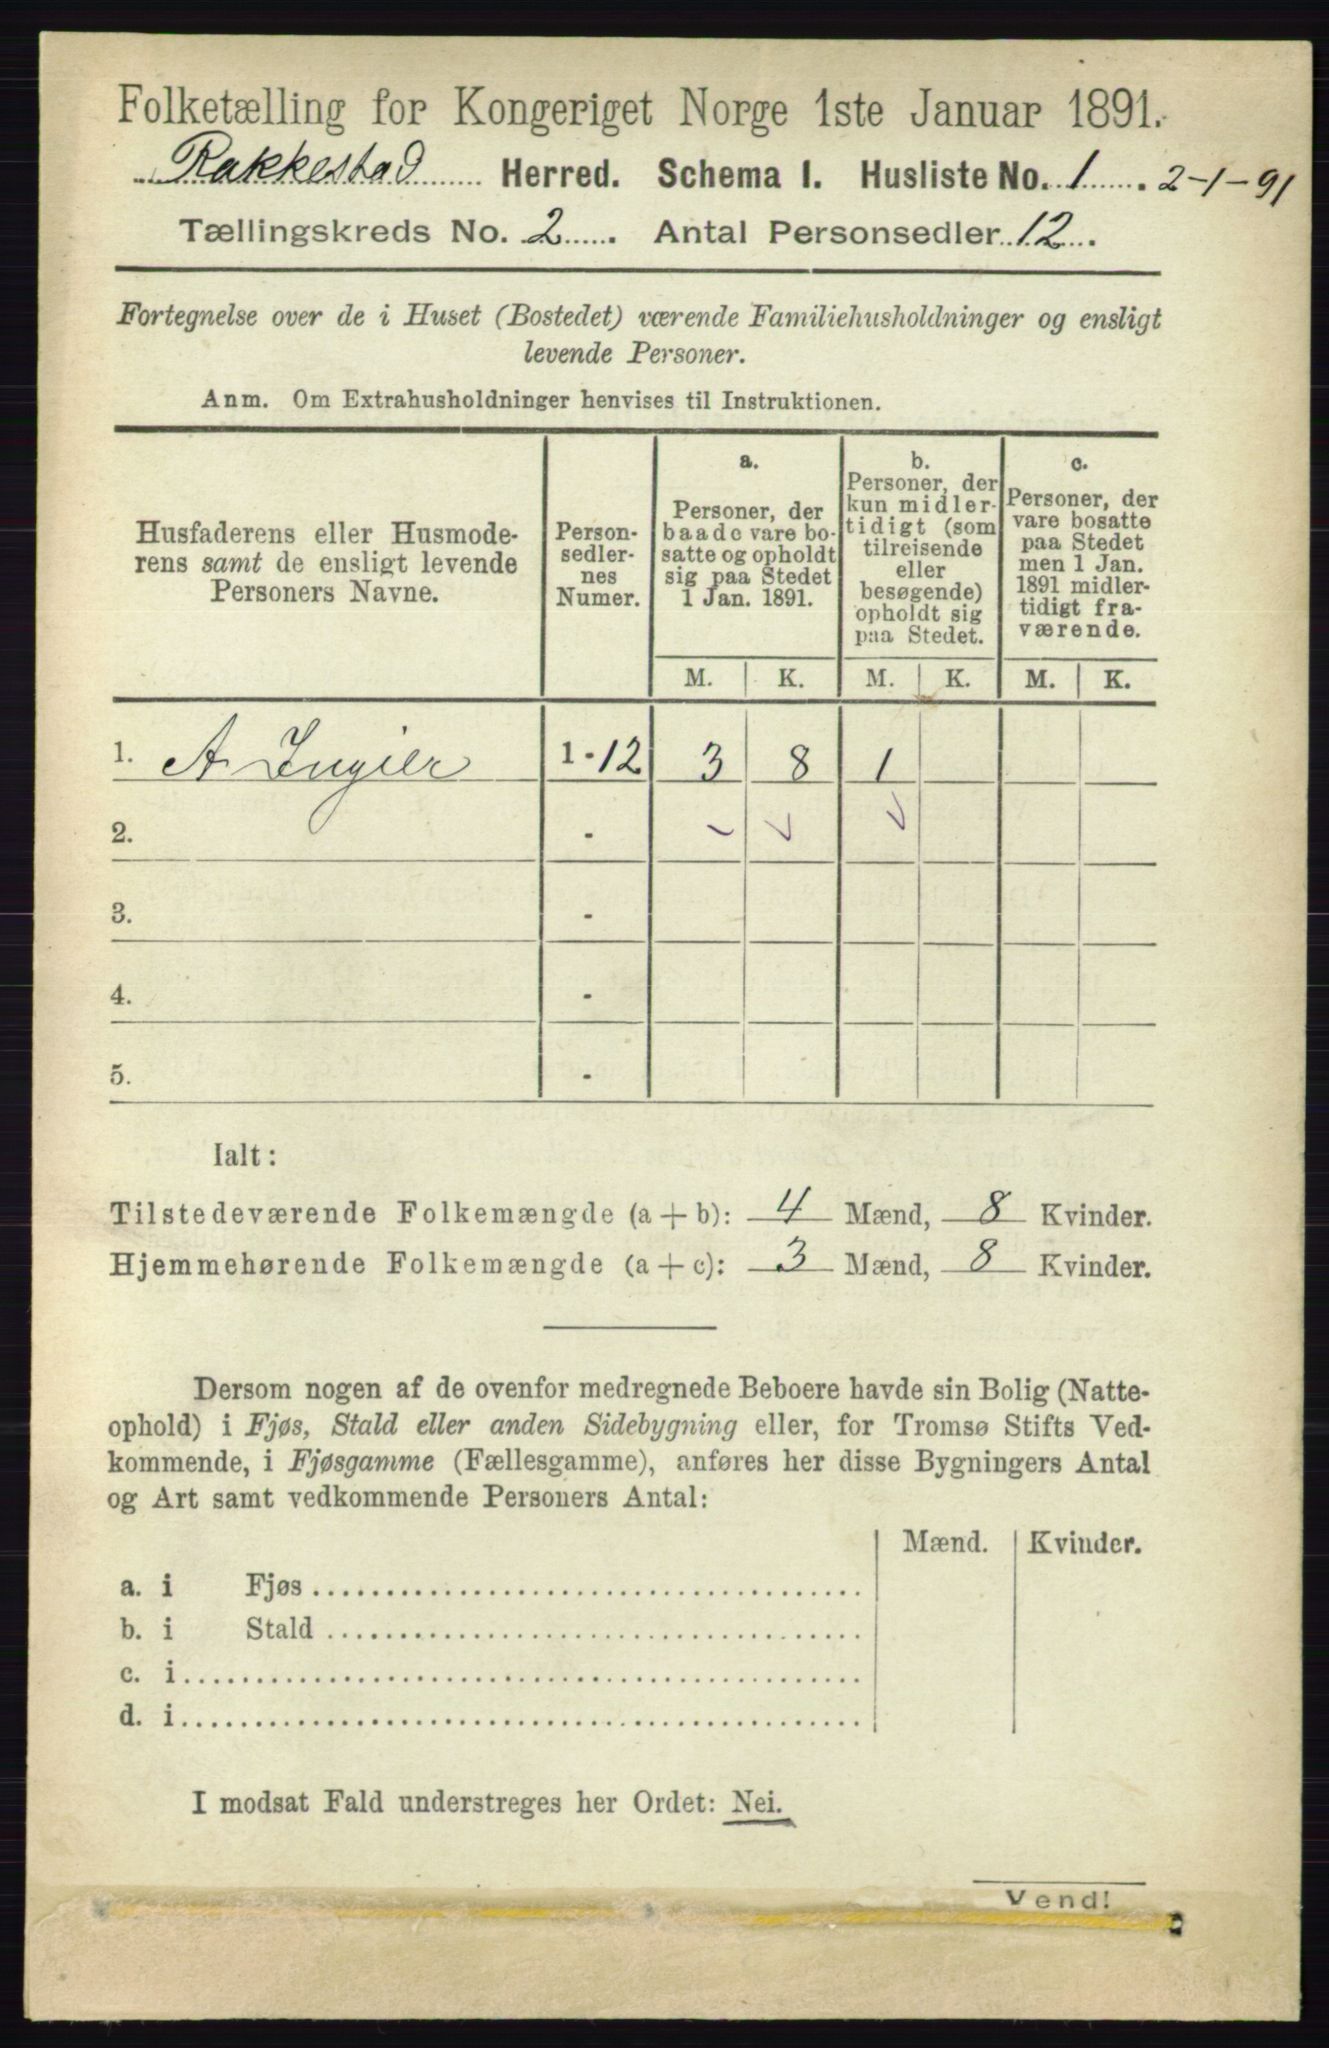 Folketælling for Kongeriget Norge 1ste Januar 1891.
Rakkestad Herred. Schema I. Husliste No. 1. 2-1-91
Tællingskreds No. 2. Antal Personsedler 12.
Fortegnelse over de i Huset (Bostedet) værende Familiehusholdninger og ensligt
levende Personer.
Anm. Om Extrahusholdninger henvises til Instruktionen.
Husfaderens eller Husmode-
rens samt de ensligt levende
Personers Navne.
Person-
sedler-
nes
Numer.
a.
Personer, der
baade vare bo-
satte og opholdt
sig paa Stedet
1 Jan. 1891.
b.
Personer, der
kun midler-
tidigt (som
tilreisende
eller
besøgende)
opholdt sig
paa Stedet.
c.
Personer, der
vare bosatte
paa Stedet
men 1 Jan.
1891 midler-
tidigt fra-
værende.
M. K. M. K. M. K.
1. A Ingier 1-12 3 8 1
2. -
3. -
4. -
5. -
Ialt:
Tilstedeværende Folkemængde (a + b): 4 Mænd, 8 Kvinder.
Hjemmehørende Folkemængde (a + c): 3 Mænd, 8 Kvinder.
Dersom nogen af de ovenfor medregnede Beboere havde sin Bolig (Natte-
ophold) i Fjøs, Stald eller anden Sidebygning eller, for Tromsø Stifts Ved-
kommende, i Fjøsgamme (Fællesgamme), anføres her disse Bygningers Antal
og Art samt vedkommende Personers Antal:
Mænd. Kvinder.
a. i Fjøs
b. i Stald
c. i
d. i
I modsat Fald understreges her Ordet: Nei.
Vend!